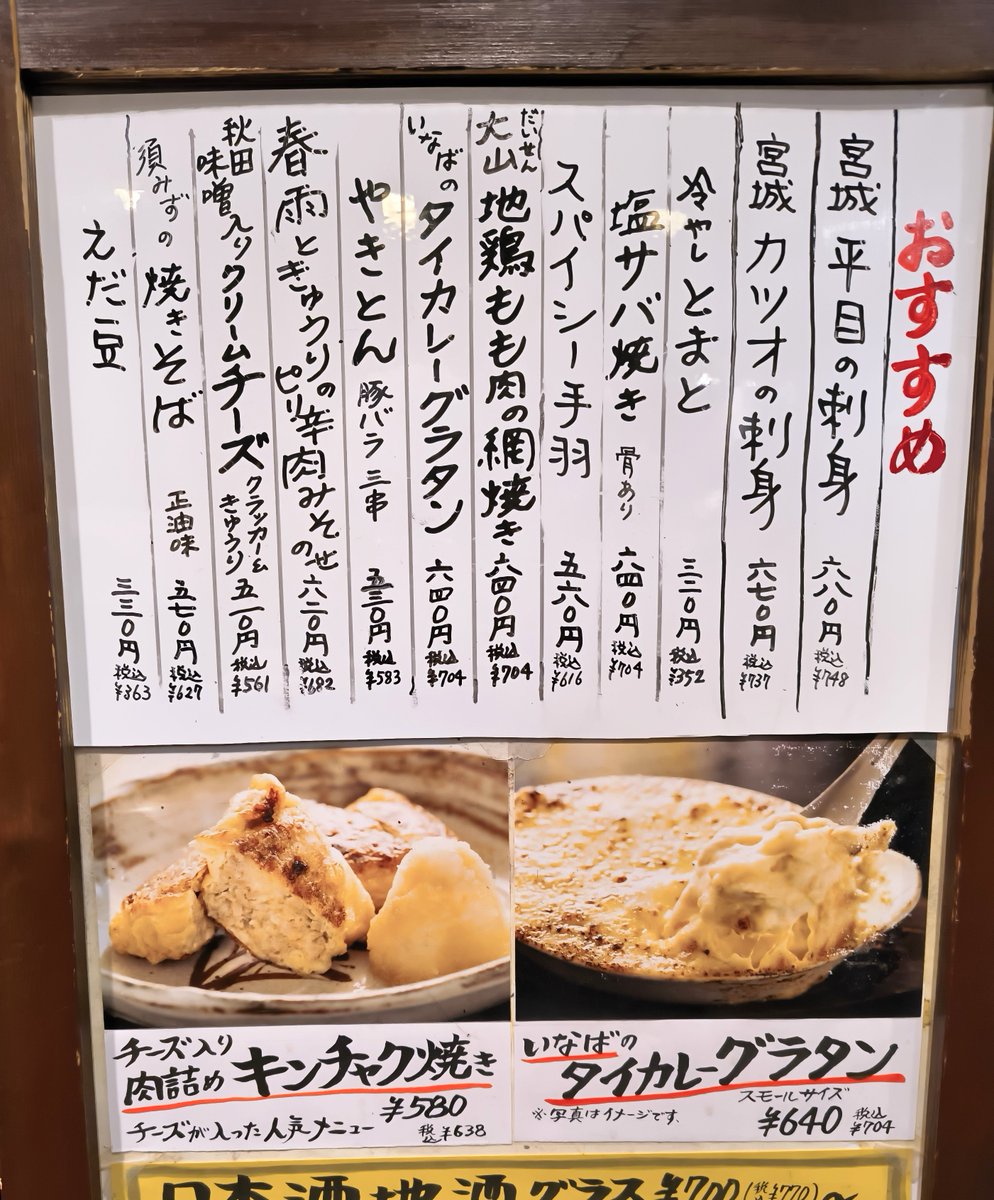 おすすめ
宮城 平目の刺身 六八〇円 税込¥748
宮城 カツオの刺身 六七〇円 税込¥737
冷やしとまと 三二〇円 税込¥352
塩サバ焼き 骨あり 六四〇円 税込¥704
スパイシー手羽 五六〇円 税込¥616
大山 だいせん 地鶏もも肉の網焼き 六四〇円 税込¥704
いなばのタイカレーグラタン 六四〇円 税込¥704
やきとん 豚バラ三串 五三〇円 税込¥583
春雨ときゅうりのピリ辛肉みそのせ 六二〇円 税込¥682
秋田味噌入りクリームチーズ クラッカー&きゅうり 五一〇円 税込¥561
須みずの焼きそば 正油味 五七〇円 税込¥627
えだ豆 三三〇円 税込¥363
チーズ入り
肉詰め キンチャク焼き
¥580
チーズが入った人気メニュー 税込¥638
いなばの
タイカレーグラタン
スモールサイズ
※写真はイメージです. ¥640 税込¥704
日本酒 地酒 グラス ¥700 (税込¥770)